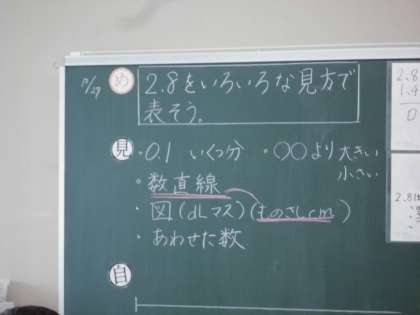 め 2.8をいろいろな見方で
表そう。
見 ・0.1 いくつ分 ・○○より大きい
小さい
・数直線
・図(dLマス)(ものさしcm)
・あわせた数
自
2.8
1.4